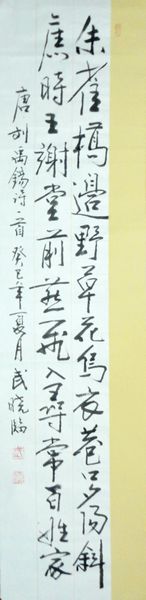 朱雀橋邊野草花烏衣巷口夕陽斜
舊時王謝堂前燕飛入尋常百姓家
唐刘禹錫詩一首 癸巳年夏月 武曉臨